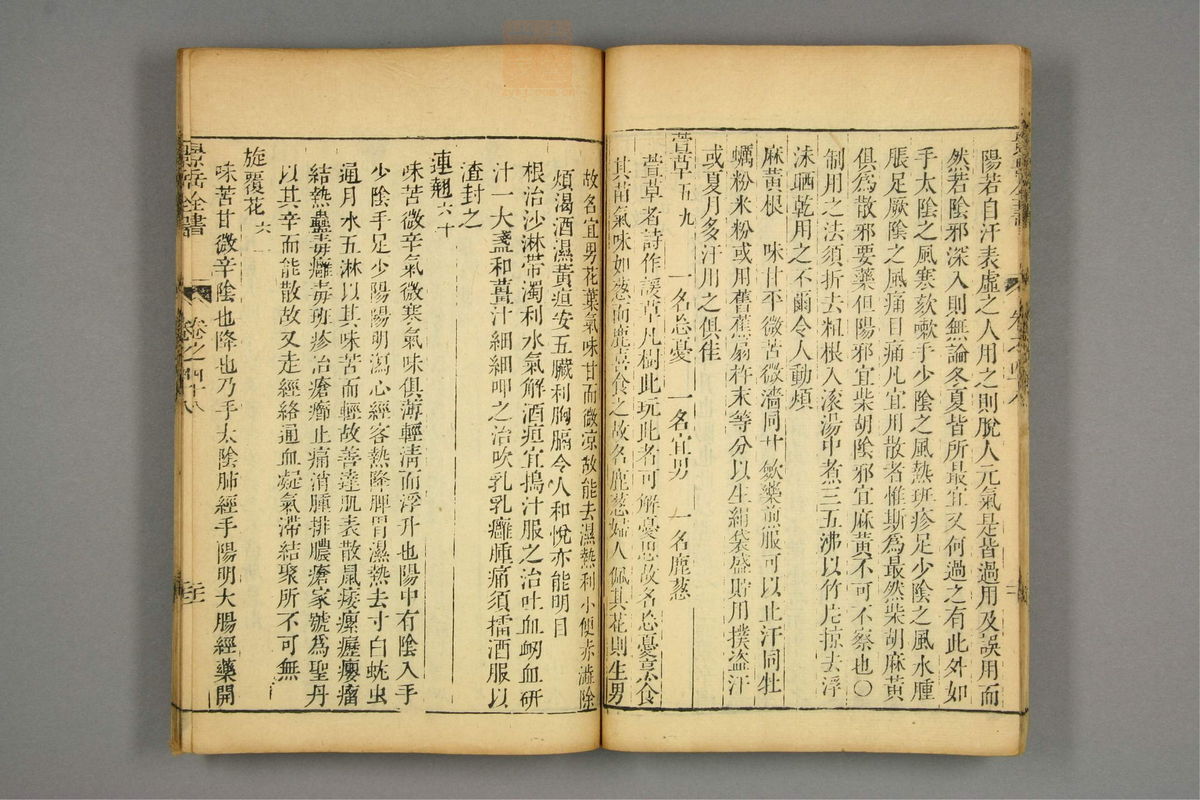 陽若自汗表虛之人用之則脫人元氣是皆過用及誤用而
然若陰邪深入則無論冬夏皆所最宜又何過之有此外如
手太陰之風寒欬嗽手少陰之風熱班疹足少陰之風水腫
脹足厥陰之風痛目痛凡宜用散者惟斯為最然柴胡麻黃
俱為散邪要藥但陽邪宜柴胡陰邪宜麻黃不可不察也○
制用之法須折去粗根入滚湯中煮三五沸以竹片掠去浮
沫晒乾用之不爾令人動煩
麻黃根 味甘平微苦微濇同甘歛藥煎服可以止汗同牡
蠣粉米粉或用舊蕉扇杵末等分以生絹袋盛貯用撲盜汗
或夏月多汗用之俱佳
萱草五九 一名忘憂 一名宜男 一名鹿葱
萱草者詩作諼草凡樹此玩此者可解憂思故名忘憂烹食
其苗氣味如葱而鹿喜食之故名鹿葱婦人佩其花則生男
故名宜男花葉氣味甘而微凉故能去濕熱利小便赤澁除
煩渴酒濕黃疸安五臟利胸膈令人和悅亦能明目
根治沙淋帶濁利水氣解酒疸宜搗汁服之治吐血衂血研
汁一大盞和薑汁細細呷之治吹乳乳癰腫痛須擂酒服以
渣封之
連翹六十
味苦微辛氣微寒氣味俱薄輕清而浮升也陽中有陰入手
少陰手足少陽陽明瀉心經客熱降脾胃濕熱去寸白蚘虫
通月水五淋以其味苦而輕故善達肌表散鼠瘻瘰癧癭瘤
結熱蠱毒癰毒班疹治瘡癤止痛消腫排膿瘡家號為聖丹
以其辛而能散故又走經絡通血凝氣滯結聚所不可無
旋覆花六一
味苦甘微辛陰也降也乃手太陰肺經手陽明大腸經藥開
景岳全書
卷之四十八